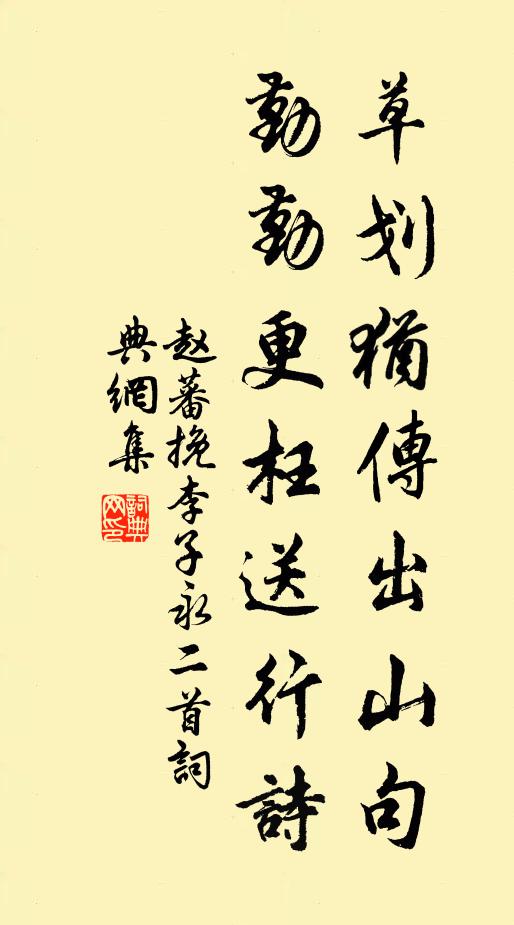 草划猶傳出山句
勤勤更枉送行詩
赵蕃挽李子永二首詞
典網集
詞典網印